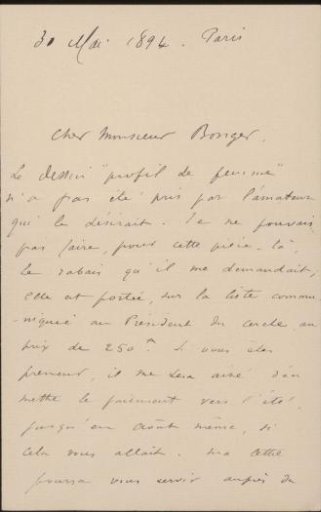 30 Mai 1894. Paris
Cher Monsieur Bonger.
Le dessin "profil de femme"
n'a pas été pris par l'amateur
qui le désirait. Je ne pouvais
pas faire, pour cette pièce-là,
le rabais qu'il me demandait,
elle est portée, sur la liste commu
-niquée au Président du cercle, au
prix de 250 fr. Si vous êtes
preneur, il me sera aisé d'en
mettre le paiement vers l'été,
jusqu'en Août même, si
cela vous allait. ma lettre
pourra vous servir auprès du